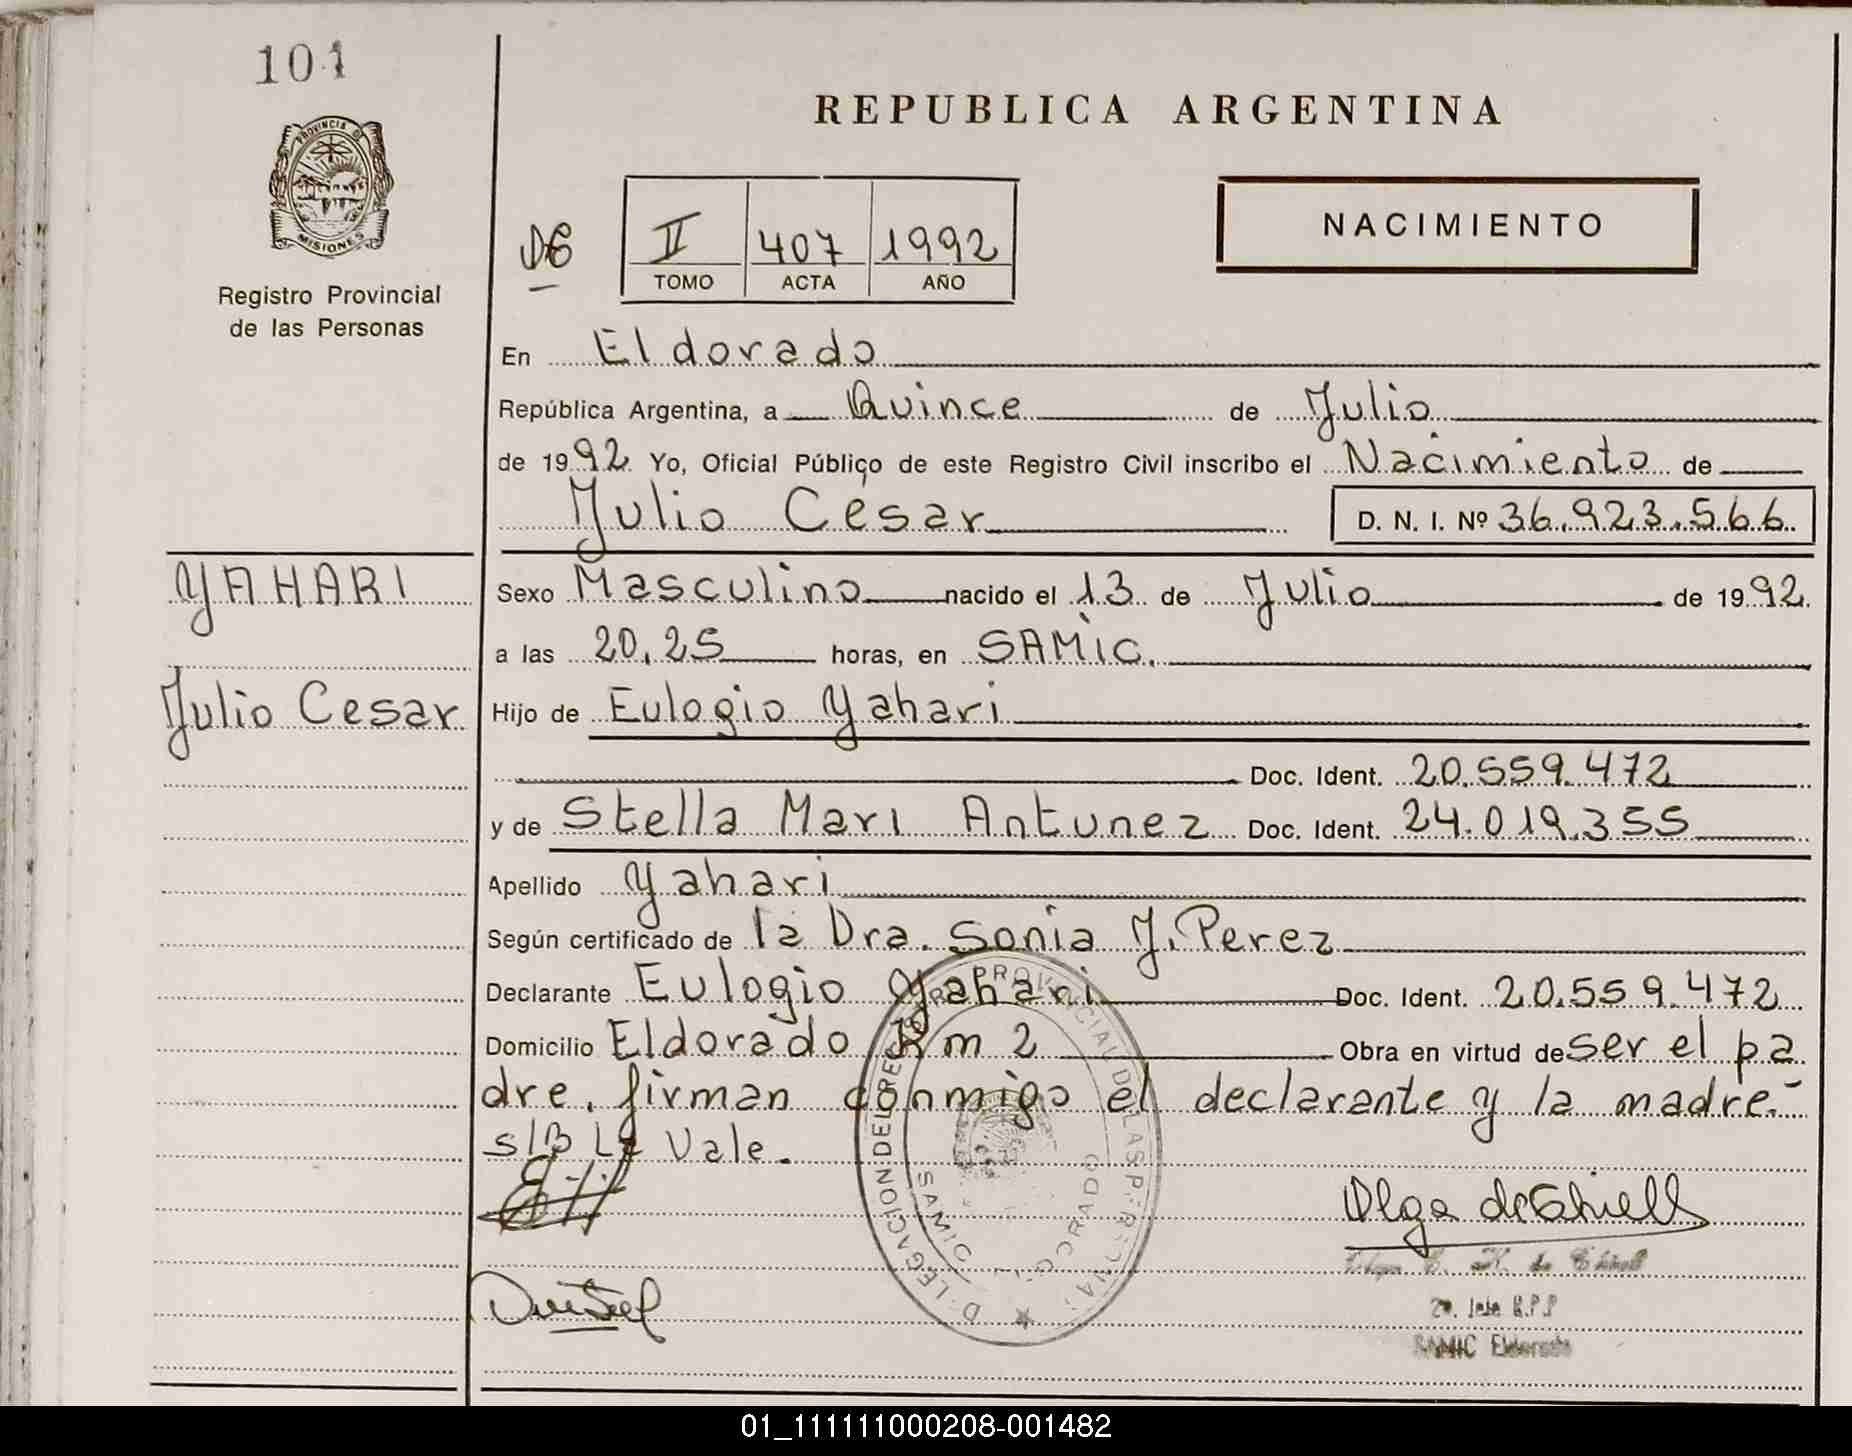 101
PROVINCIA D
MISIONES
Registro Provincial
de las Personas
REPUBLICA ARGENTINA
NACIMIENTO
II 407 1992
TOMO ACTA AÑO
En Eldorado
República Argentina, a Quince de Julio
de 1992 Yo, Oficial Público de este Registro Civil inscribo el Nacimiento de
Julio Cesar D. N. I. Nº 36.923.566
YAHARI
Julio Cesar
Sexo Masculino nacido el 13 de Julio de 1992.
a las 20.25 horas, en SAMIC.
Hijo de Eulogio Yahari
Doc. Ident. 20.559.472
y de Stella Mari Antunez Doc. Ident. 24.019.355
Apellido Yahari
Según certificado de la Dra. Sonia J. Perez
Declarante Eulogio Yahari Doc. Ident. 20.559.472
Domicilio Eldorado Km 2 Obra en virtud de ser el pa
dre. firman conmigo el declarante y la madre.-
Vale.
SAMIC
Olga de Chiell
SAMIC Eldorado
01_111111000208-001482